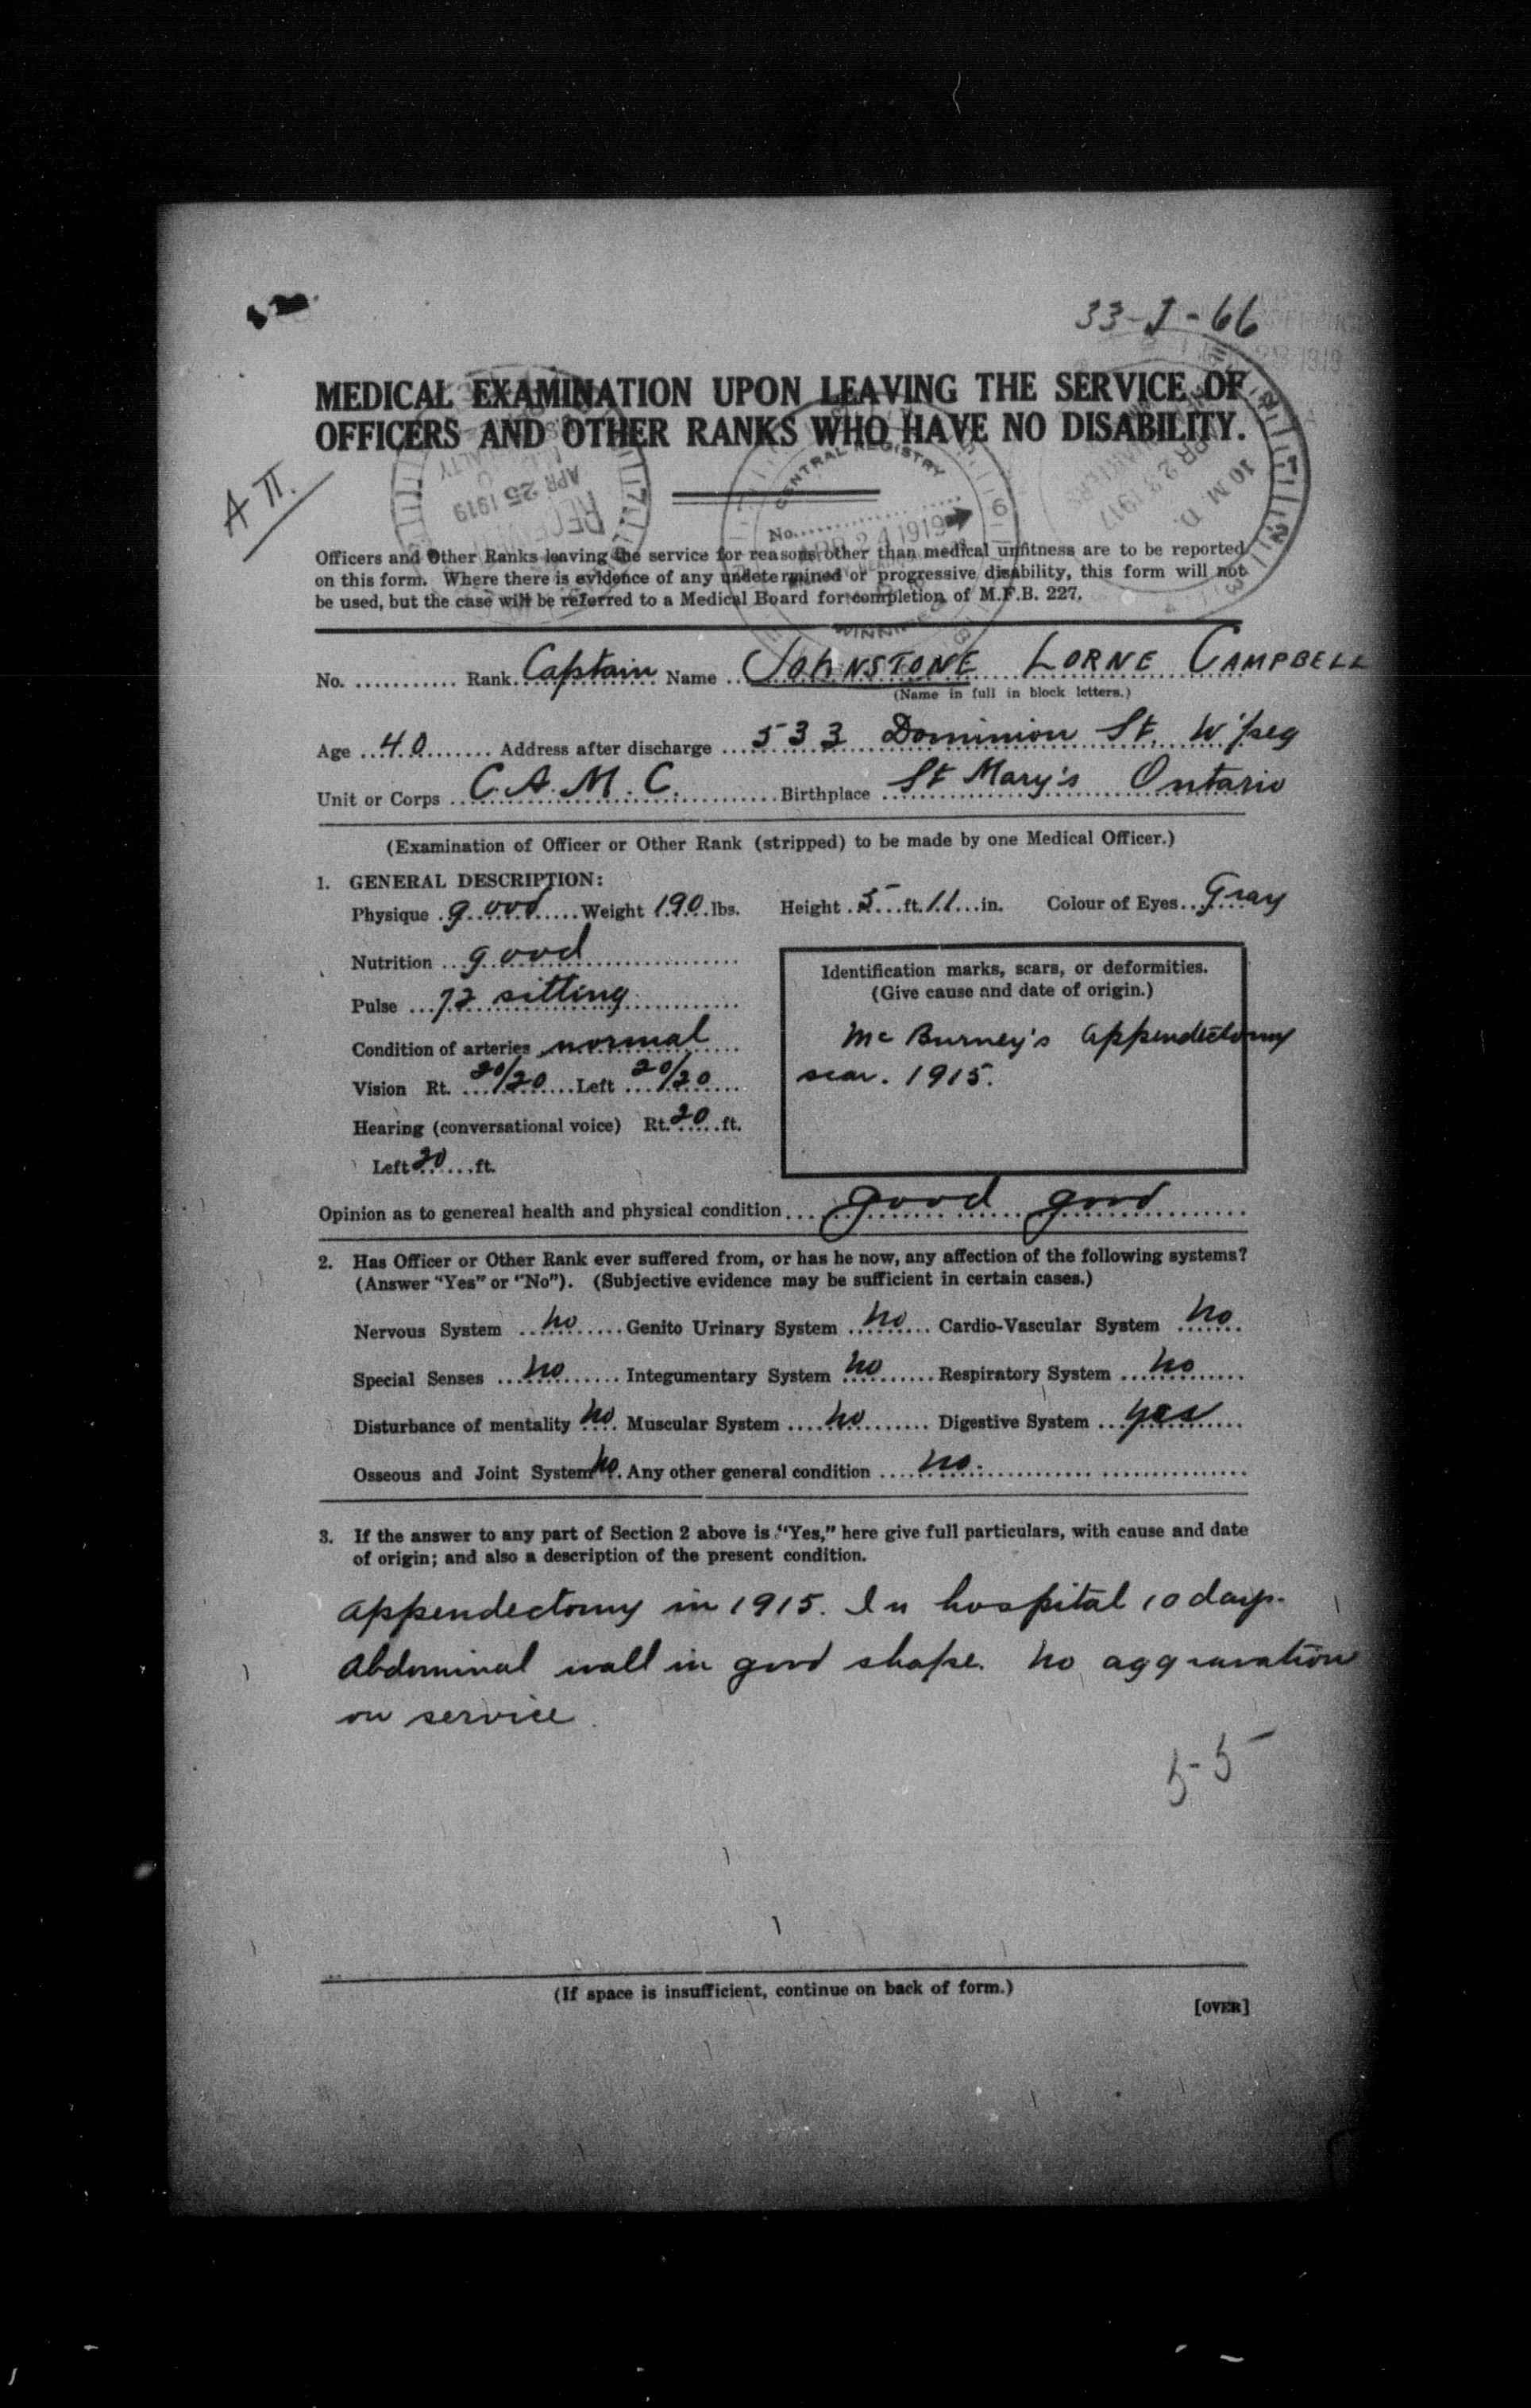 33-J-66
MEDICAL EXAMINATION UPON LEAVING THE SERVICE OF
OFFICERS AND OTHER RANKS WHO HAVE NO DISABILITY.
A II.
APR 25 1919
CENTRAL REGISTRY
No.
APR 24 1919
WINNIPEG
10 M. D.
Officers and Other Ranks leaving the service for reasons other than medical unfitness are to be reported
on this form. Where there is evidence of any undetermined or progressive disability, this form will not
be used, but the case will be referred to a Medical Board for completion of M.F.B. 227.
No. ........... Rank Captain Name JOHNSTONE LORNE CAMPBELL
(Name in full in block letters.)
Age 40 Address after discharge 533 Dominion St. W'peg
Unit or Corps C.A.M.C. Birthplace St Mary's Ontario
(Examination of Officer or Other Rank (stripped) to be made by one Medical Officer.)
1. GENERAL DESCRIPTION:
Physique good Weight 190 lbs. Height 5 ft. 11 in. Colour of Eyes Gray
Nutrition good
Pulse 72 sitting
Condition of arteries normal
Vision Rt. 20/20 Left 20/20
Hearing (conversational voice) Rt. 20 ft.
Left 20 ft.
Identification marks, scars, or deformities.
(Give cause and date of origin.)
Mc Burney's appendectomy
scar. 1915.
Opinion as to genereal health and physical condition good good
2. Has Officer or Other Rank ever suffered from, or has he now, any affection of the following systems?
(Answer "Yes" or "No"). (Subjective evidence may be sufficient in certain cases.)
Nervous System no Genito Urinary System no Cardio-Vascular System no
Special Senses no Integumentary System no Respiratory System no
Disturbance of mentality no Muscular System no Digestive System yes
Osseous and Joint System no Any other general condition no.
3. If the answer to any part of Section 2 above is "Yes," here give full particulars, with cause and date
of origin; and also a description of the present condition.
appendectomy in 1915. In hospital 10 days.
abdominal wall in good shape. No aggravation
on service.
5-5
(If space is insufficient, continue on back of form.)
[OVER]